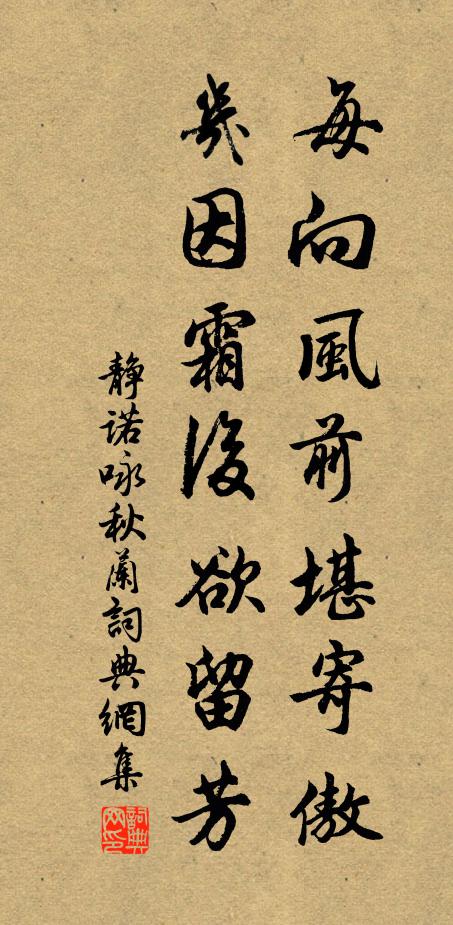 每向風前堪寄傲
幾因霜後欲留芳
静諾咏秋蘭詞典網集
詞典网印